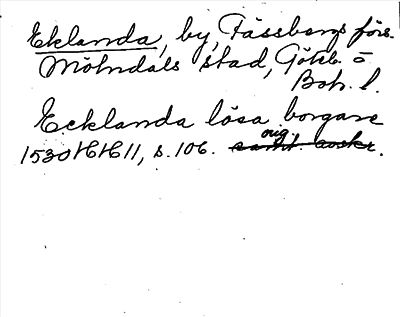 Eklanda, by, Fässbergs förs.
Mölndals stad, Göteb. o
Boh. l.
Ecklanda lösa borgare
1530 HH 11, s. 106. orig.
samt. avskr.